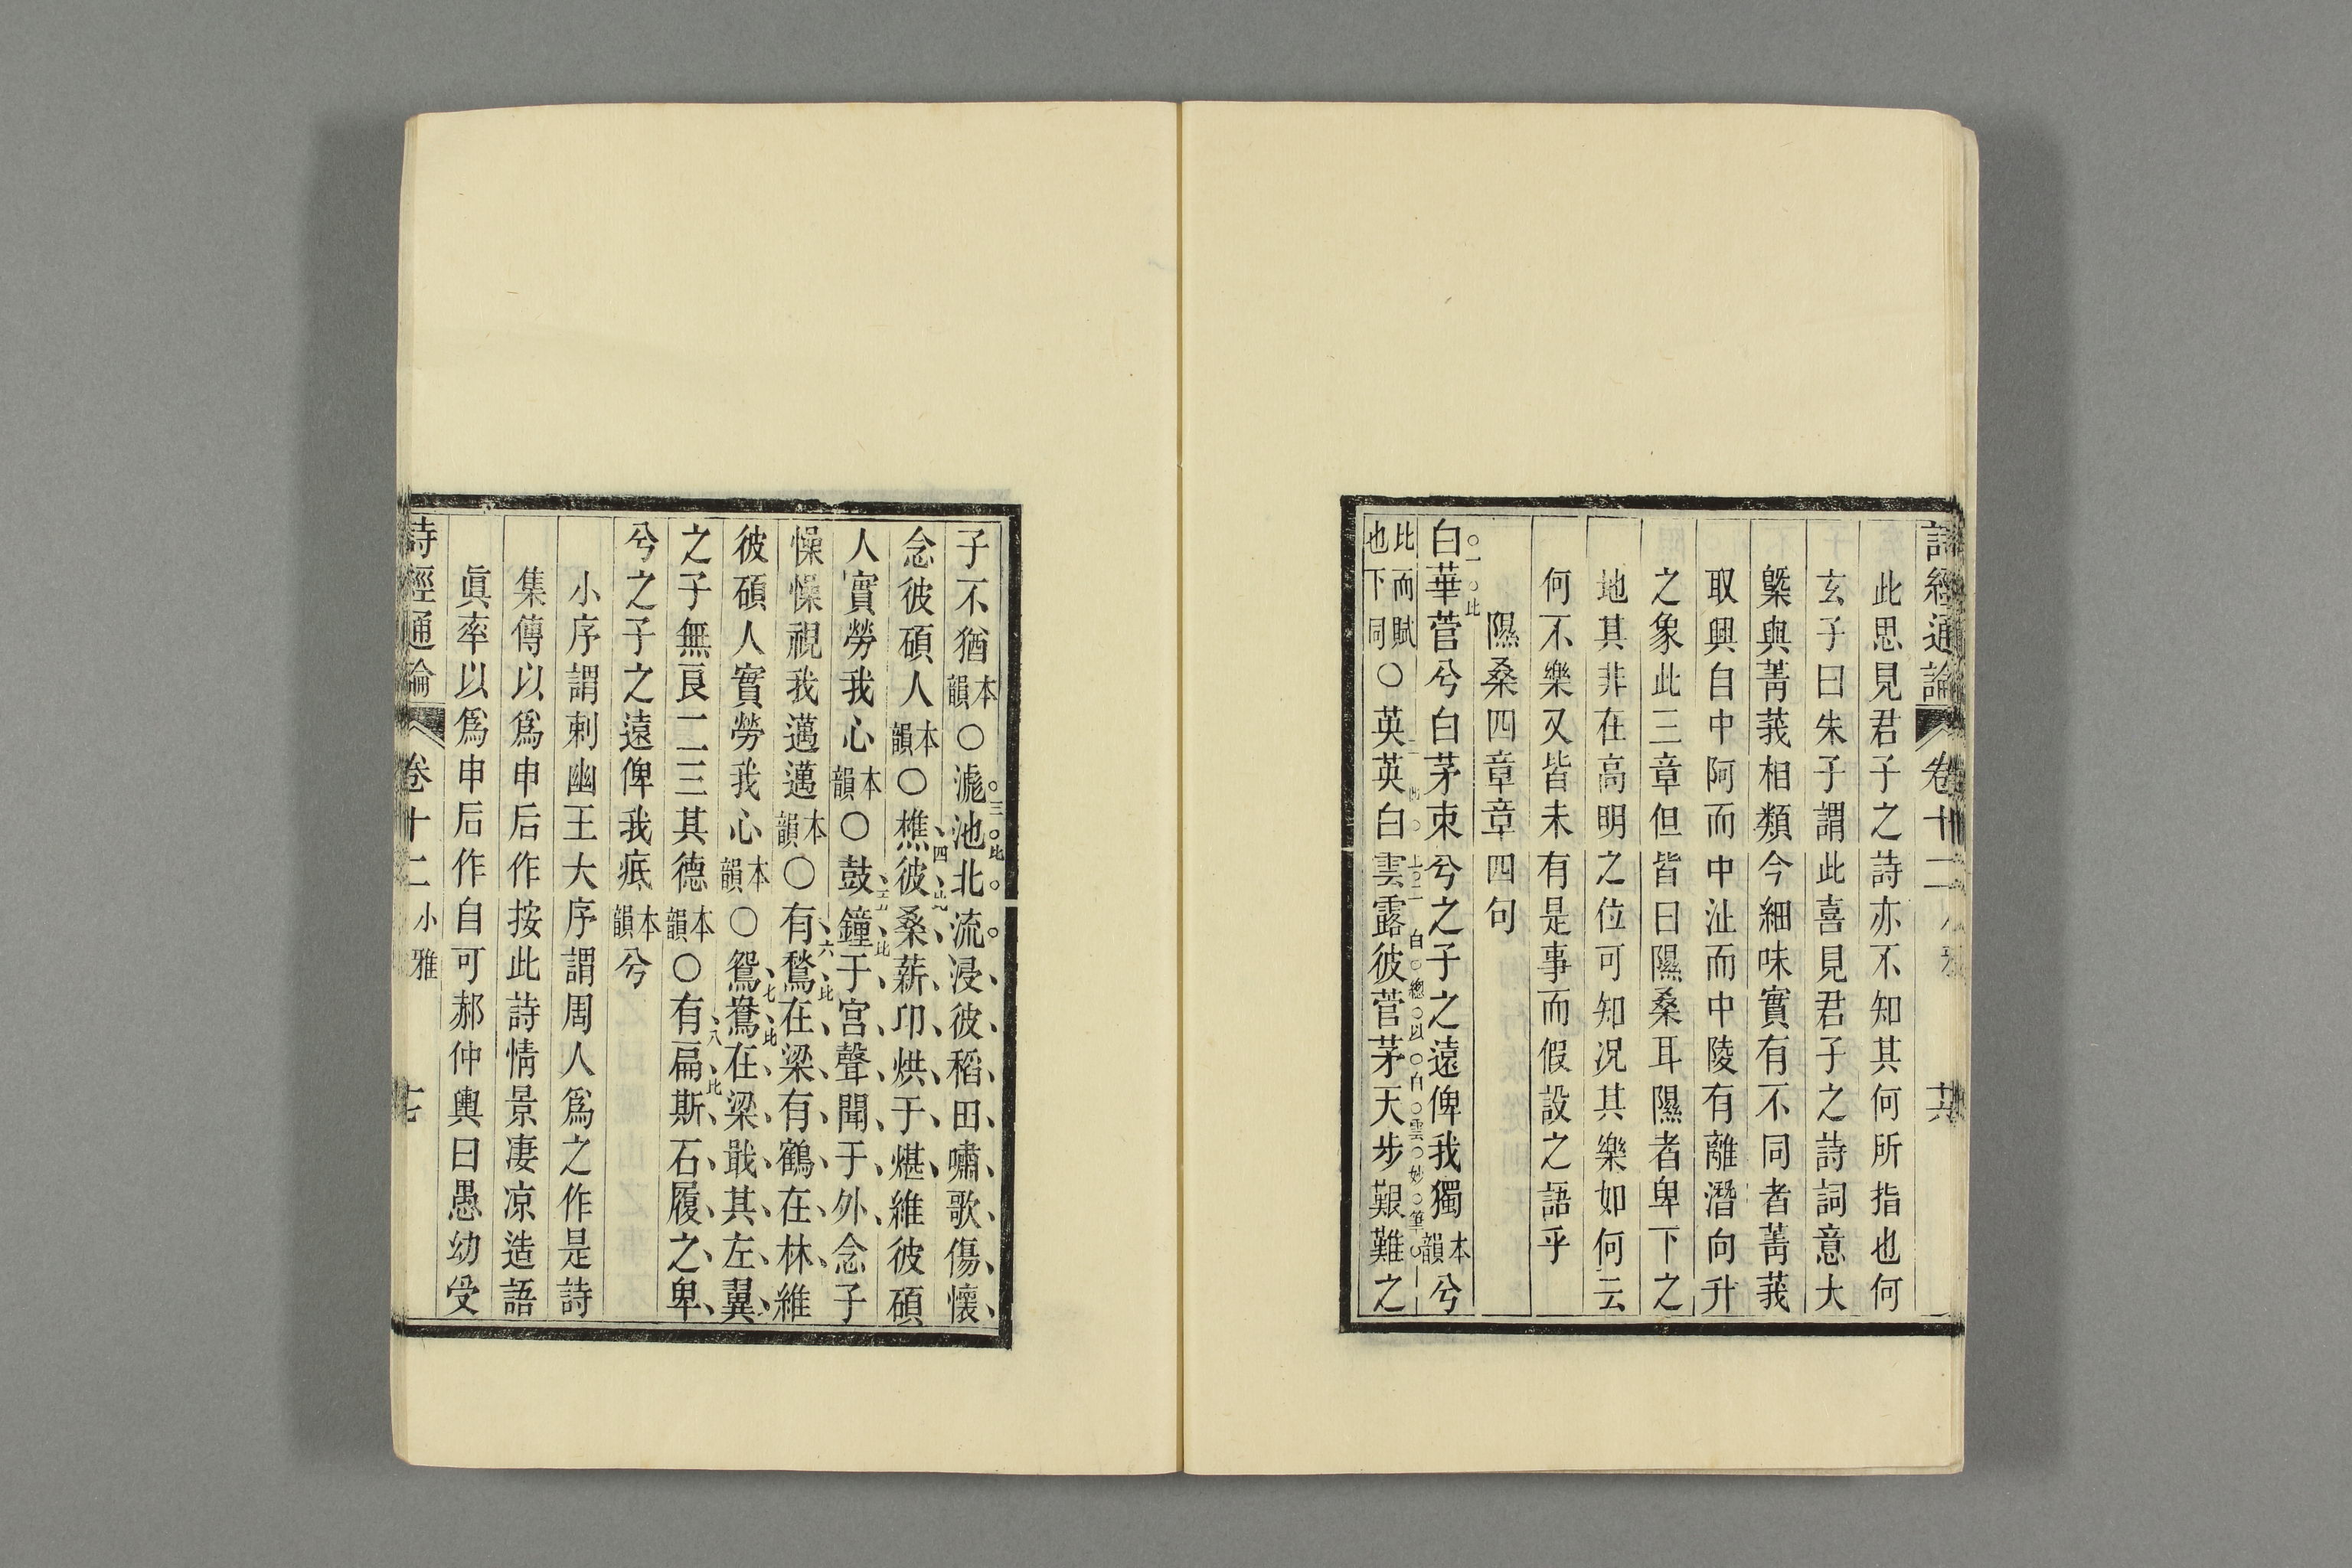 詩經通論 卷十二 小雅 十六
此思見君子之詩亦不知其何所指也何
玄子曰朱子謂此喜見君子之詩詞意大
槩與菁莪相類今細味實有不同者菁莪
取興自中阿而中沚而中陵有離潛向升
之象此三章但皆曰隰桑耳隰者卑下之
地其非在高明之位可知况其樂如何云
何不樂又皆未有是事而假設之語乎
隰桑四章章四句
白華菅兮白茅束兮之子之遠俾我獨本韻兮
○一○比
比而賦也下同○英英白雲露彼菅茅天步艱難之
白○總○以○白○雲○妙○筆○
子不猶本韻○滮池北流浸彼稻田嘯歌傷懷
○三○比
念彼碩人本韻○樵彼桑薪卬烘于煁維彼碩
四比
人實勞我心本韻○鼓鐘于宮聲聞于外念子
五比
懆懆視我邁邁本韻○有鶖在梁有鶴在林維
六比
彼碩人實勞我心本韻○鴛鴦在梁戢其左翼
七比
之子無良二三其德本韻○有扁斯石履之卑
八比
兮之子之遠俾我疧本韻兮
小序謂刺幽王大序謂周人爲之作是詩
集傳以爲申后作按此詩情景凄凉造語
眞率以爲申后作自可郝仲輿曰愚幼受
詩經通論 卷十二 小雅 十七